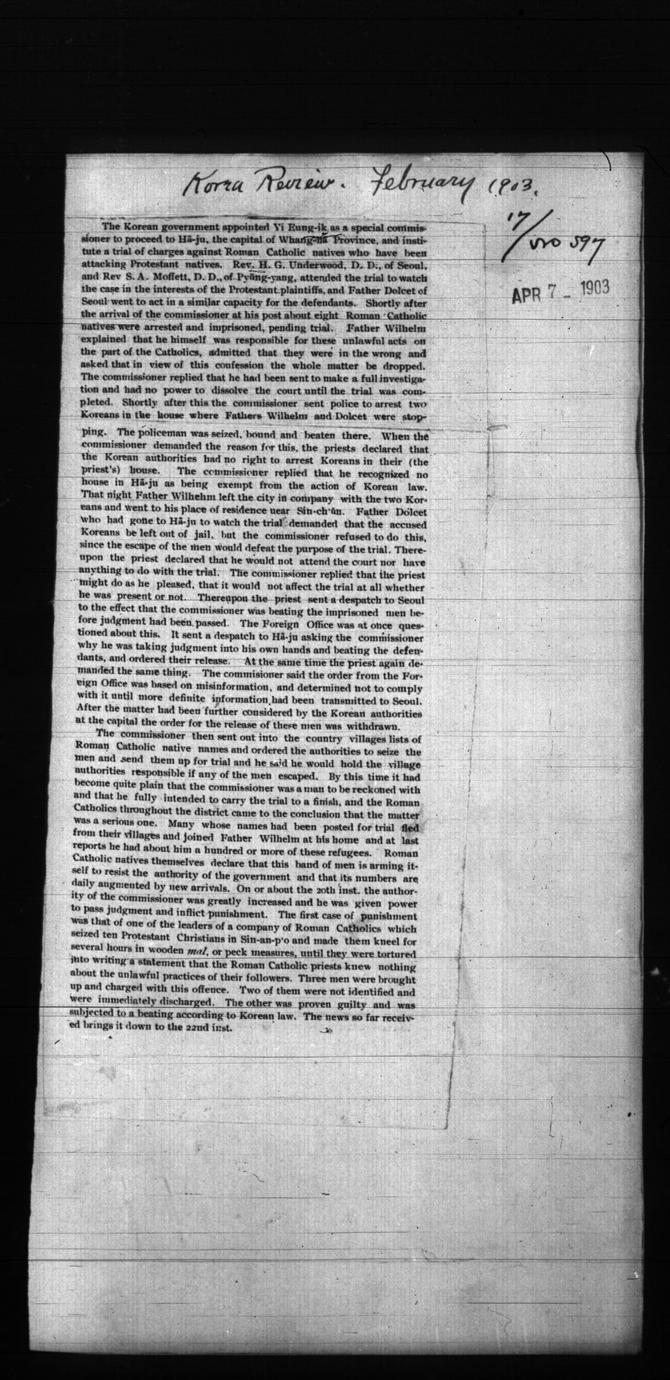 Korea Review. February 1903.
17/
VVO 597
APR 7 - 1903
The Korean government appointed Yi Eung-ik as a special commis-
sioner to proceed to Hă-ju, the capital of Whang-hă Province, and insti-
tute a trial of charges against Roman Catholic natives who have been
attacking Protestant natives. Rev. H. G. Underwood, D. D., of Seoul,
and Rev S. A. Moffett, D. D., of Pyăng-yang, attended the trial to watch
the case in the interests of the Protestant plaintiffs, and Father Dolcet of
Seoul went to act in a similar capacity for the defendants. Shortly after
the arrival of the commissioner at his post about eight Roman Catholic
natives were arrested and imprisoned, pending trial. Father Wilhelm
explained that he himself was responsible for these unlawful acts on
the part of the Catholics, admitted that they were in the wrong and
asked that in view of this confession the whole matter be dropped.
The commissioner replied that he had been sent to make a full investiga-
tion and had no power to dissolve the court until the trial was com-
pleted. Shortly after this the commissioner sent police to arrest two
Koreans in the house where Fathers Wilhelm and Dolcet were stop-
ping. The policeman was seized, bound and beaten there. When the
commissioner demanded the reason for this, the priests declared that
the Korean authorities had no right to arrest Koreans in their (the
priest's) house. The commissioner replied that he recognized no
house in Hă-ju as being exempt from the action of Korean law.
That night Father Wilhelm left the city in company with the two Kor-
eans and went to his place of residence near Sin-ch'ŭn. Father Dolcet
who had gone to Hă-ju to watch the trial demanded that the accused
Koreans be left out of jail, but the commissioner refused to do this,
since the escape of the men would defeat the purpose of the trial. There-
upon the priest declared that he would not attend the court nor have
anything to do with the trial. The commissioner replied that the priest
might do as he pleased, that it would not affect the trial at all whether
he was present or not. Thereupon the priest sent a despatch to Seoul
to the effect that the commissioner was beating the imprisoned men be-
fore judgment had been passed. The Foreign Office was at once ques-
tioned about this. It sent a despatch to Hă-ju asking the commissioner
why he was taking judgment into his own hands and beating the defen-
dants, and ordered their release. At the same time the priest again de-
manded the same thing. The commisioner said the order from the For-
eign Office was based on misinformation, and determined not to comply
with it until more definite information had been transmitted to Seoul.
After the matter had been further considered by the Korean authorities
at the capital the order for the release of these men was withdrawn.
The commissioner then sent out into the country villages lists of
Roman Catholic native names and ordered the authorities to seize the
men and send them up for trial and he said he would hold the village
authorities responsible if any of the men escaped. By this time it had
become quite plain that the commissioner was a man to be reckoned with
and that he fully intended to carry the trial to a finish, and the Roman
Catholics throughout the district came to the conclusion that the matter
was a serious one. Many whose names had been posted for trial fled
from their villages and joined Father Wilhelm at his home and at last
reports he had about him a hundred or more of these refugees. Roman
Catholic natives themselves declare that this band of men is arming it-
self to resist the authority of the government and that its numbers are
daily augmented by new arrivals. On or about the 20th inst. the author-
ity of the commissioner was greatly increased and he was given power
to pass judgment and inflict punishment. The first case of punishment
was that of one of the leaders of a company of Roman Catholics which
seized ten Protestant Christians in Sin-an-p'o and made them kneel for
several hours in wooden mal, or peck measures, until they were tortured
into writing a statement that the Roman Catholic priests knew nothing
about the unlawful practices of their followers. Three men were brought
up and charged with this offence. Two of them were not identified and
were immediately discharged. The other was proven guilty and was
subjected to a beating according to Korean law. The news so far receiv-
ed brings it down to the 22nd inst.